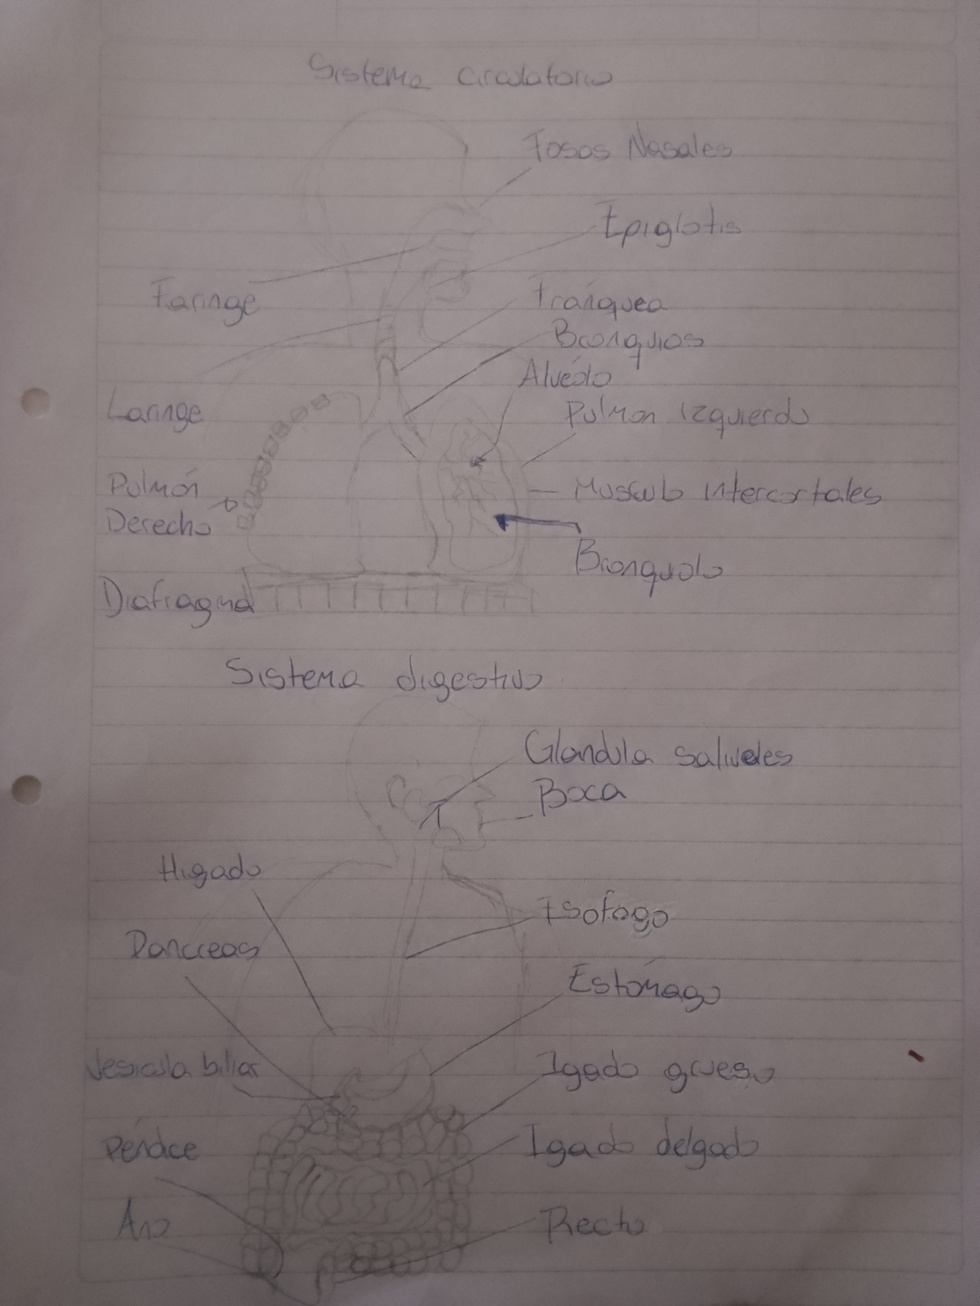 Sistema circulatorio
Fosos Nasales
Epiglotis
Faringe
Tranquea
Bronquios
Alveólo
Laringe
Pulmon Izquierdo
Pulmón
Derecho
Musculo intercortales
Bronquiolo
Diafragma
Sistema digestivo
Glandula saliveles
Boca
Higado
Esofago
Pancreas
Estómago
Vesicula biliar
Igado grueso
Péndice
Igado delgado
Ano
Recto